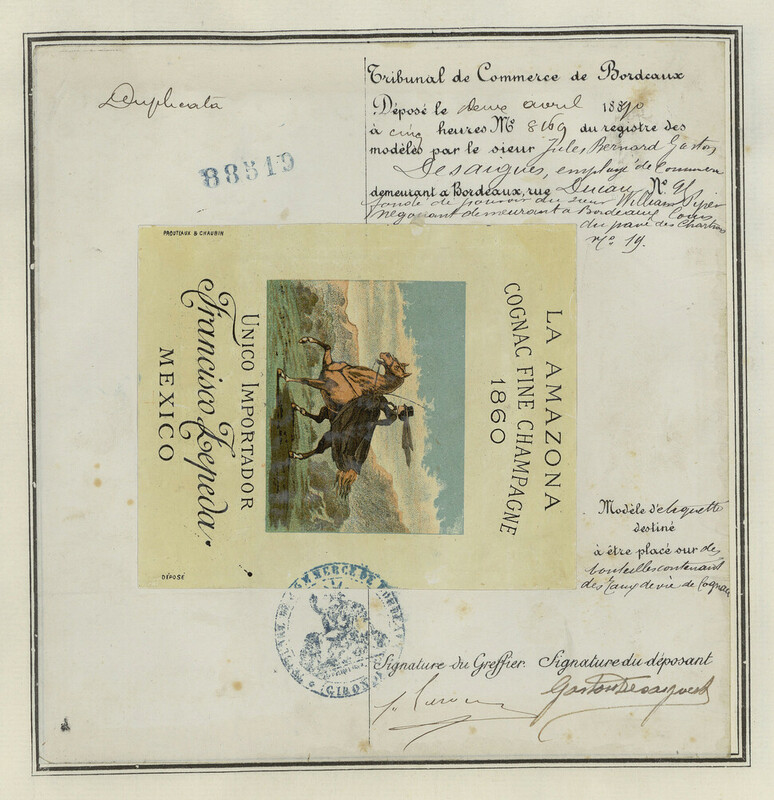 Duplicata
88519
Tribunal de Commerce de Bordeaux
Déposé le deux avril 1890
à cinq heures No 8169 du registre des
modèles par le sieur Jules Bernard Gaston
Desaigues, employé de Commerce
demeurant à Bordeaux, rue Ducau, No
fondé de pouvoir du sieur William Piper
négociant demeurant à Bordeaux Cours
du pavé des Chartrons
No 19.
PROUTEAUX & CHAUBIN
LA AMAZONA
COGNAC FINE CHAMPAGNE
1860
UNICO IMPORTADOR
Francisco Zepeda.
MEXICO
DÉPOSÉ
Modèle d'etiquette
destiné
à être placé sur des
bouteilles contenant
des Eaux de vie de Cognac
TRIBUNAL DE COMMERCE DE BORDEAUX
(GIRONDE)
Signature du Greffier. Signature du déposant